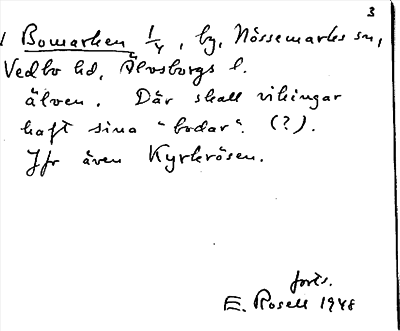 3
1 Bomarken 1/4, by, Nössemarks sn,
Vedbo hd, Älvsborgs l.
älven. Där skall vikingar
haft sina "bodar". (?).
Jfr även Kyrkrösen.
forts.
E. Rosell 1948